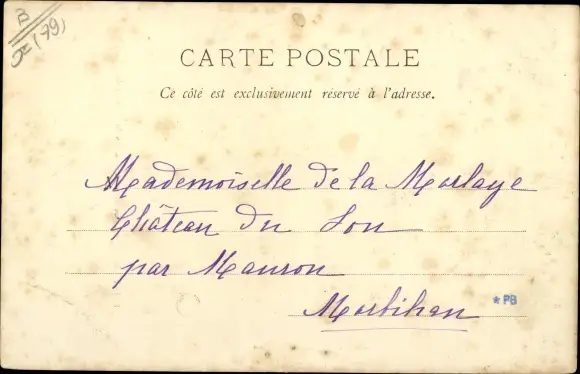 (79)
CARTE POSTALE
Ce côté est exclusivement réservé à l'adresse.
Mademoiselle de la Morlaye
Château du Lou
par Mauron
Morbihan
*PB